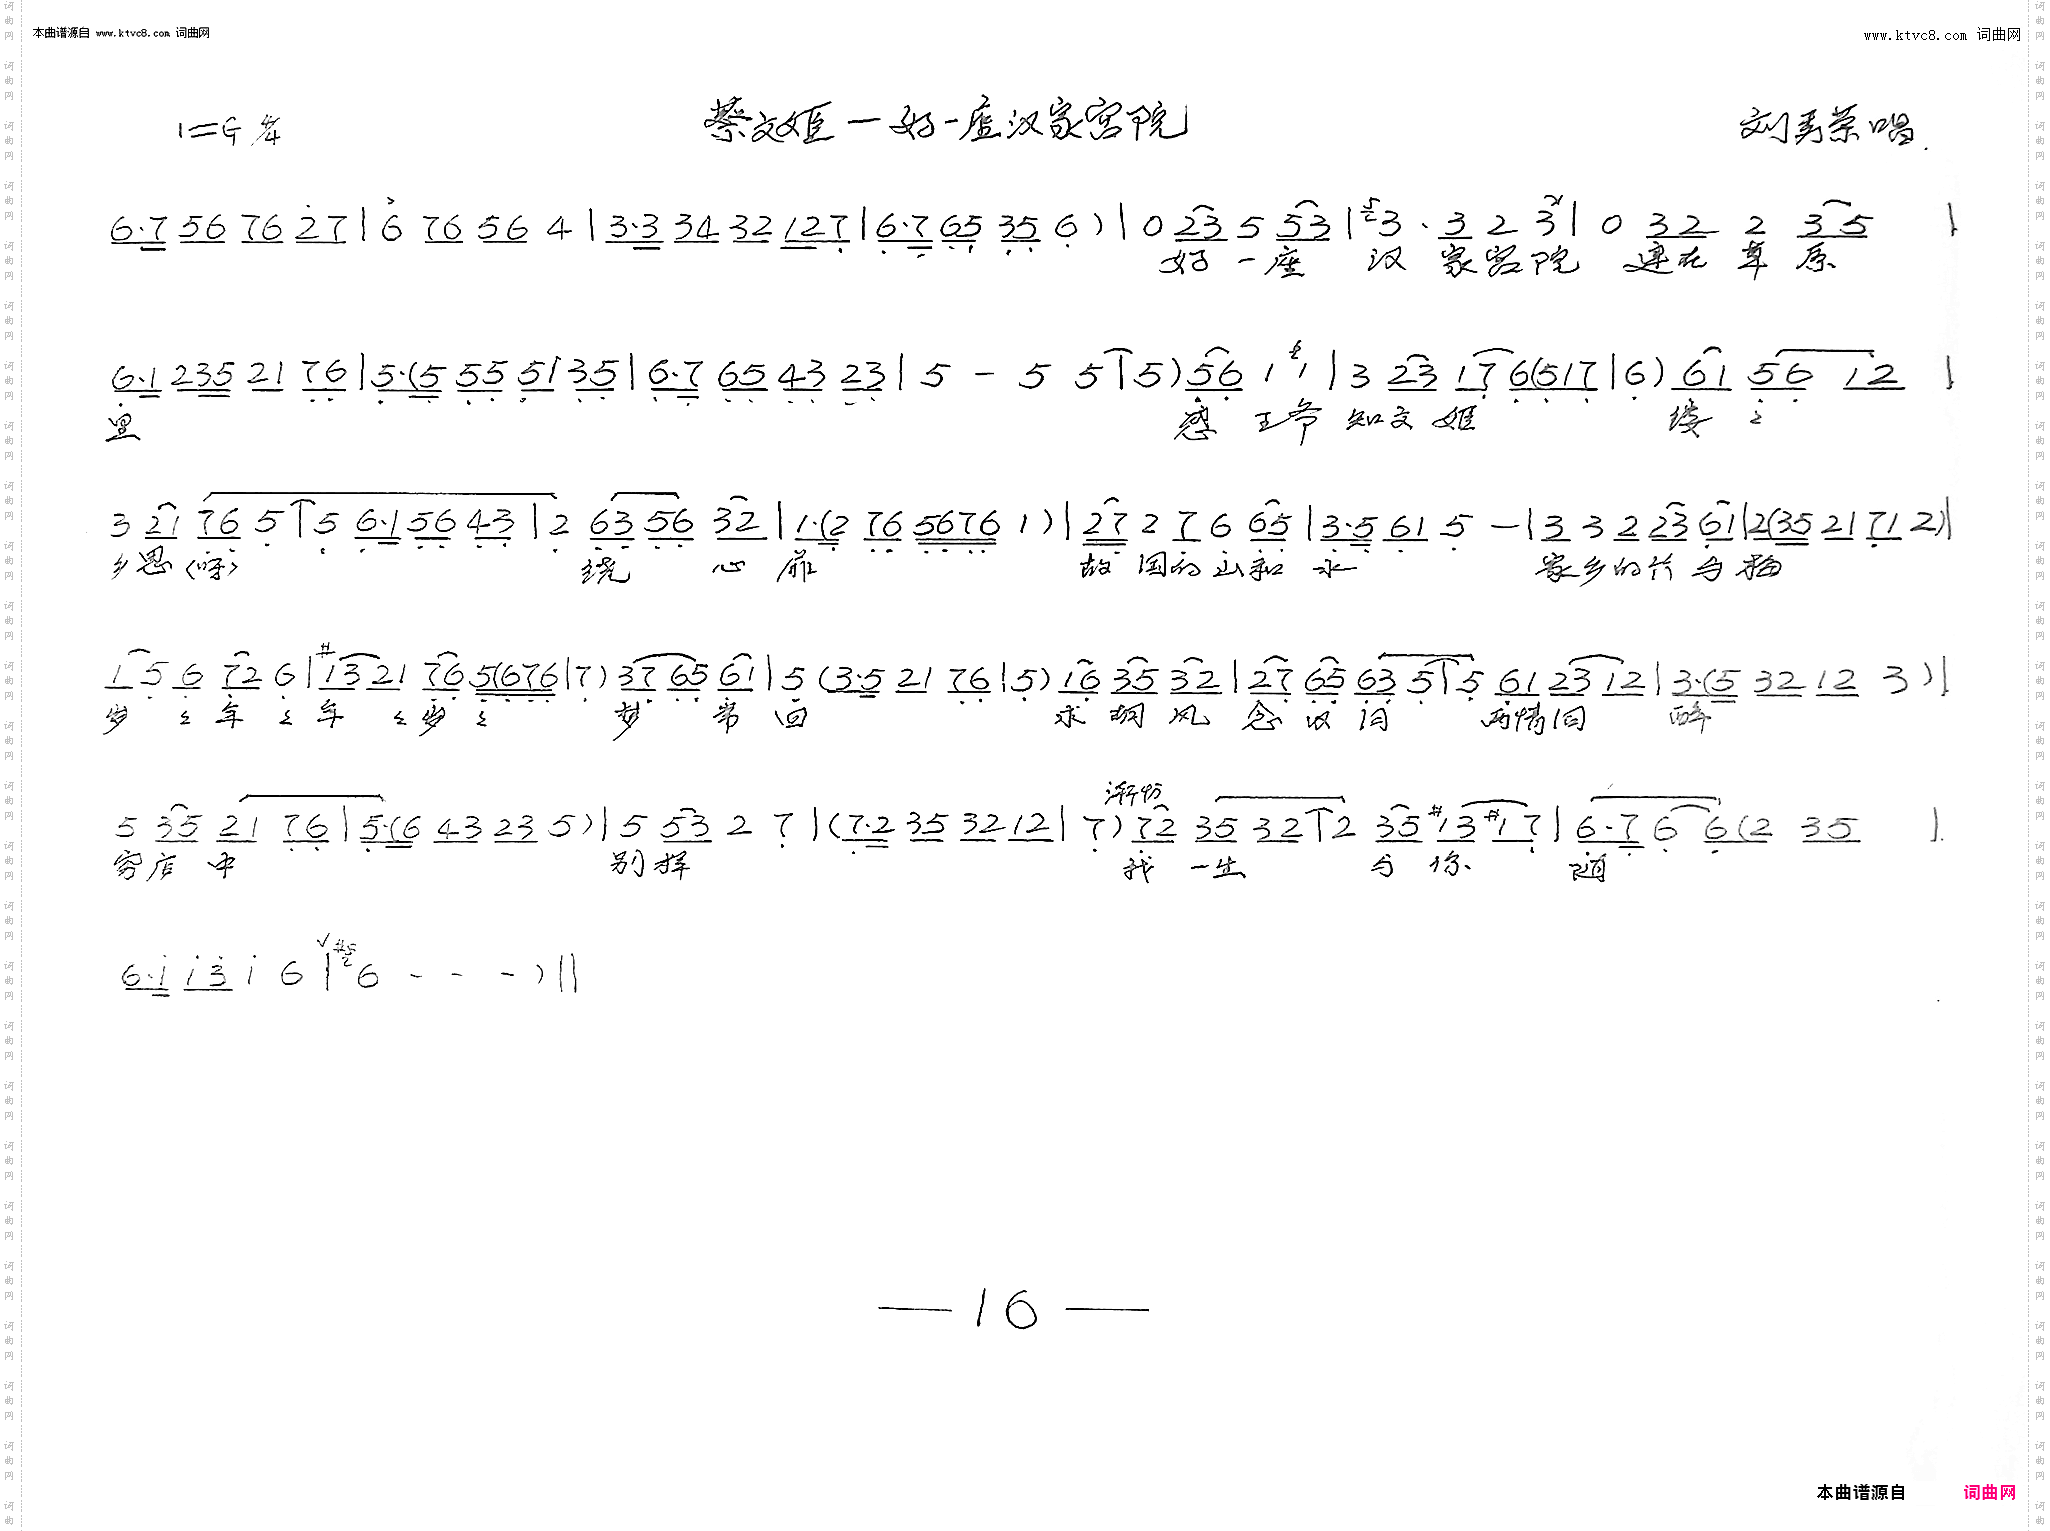 本曲谱源自 www.ktvc8.com 词曲网
www.ktvc8.com 词曲网
1=G
蔡文姬—好一座汉家宫院
刘秀荣唱
6·7 56 76 27 | 6 76 56 4 | 3·3 34 32 127 | 6·7 65 35 6 ) | 0 23 5 53 | 3 · 3 2 3 | 0 32 2 35 |
好一座 汉家宫院 建在草原
6·1 235 21 76 | 5·(5 55 51 35 | 6·7 65 43 23 | 5 - 5 5 | 5) 56 1 1 | 3 23 17 6(517 | 6) 61 56 12 |
里 感王爷知文姬 缕々
3 21 76 5 | 5 6·1 56 43 | 2 63 56 32 | 1·(2 76 5676 1) | 27 2 7 6 65 | 3·5 61 5 — | 3 3 2 23 61 | 2(35 21 71 2) |
乡思(呀) 绕心扉 故国的山和水 家乡的竹与梅
1 5 6 72 6 | #13 21 76 5(676 | 7) 37 65 61 | 5 (3·5 21 76 | 5) 16 35 32 | 27 65 63 5 | 5 61 23 12 | 3·(5 32 12 3) |
岁々年々年々岁々 梦常回 胡风念汉 两情 醉
5 35 21 76 | 5·(6 43 23 5) | 5 53 2 7 | (7·2 35 32 12 | 7) 72 35 32 | 2 35 #13 #17 | 6·7 6 6(2 35 |
渐慢
穹庐中 别样 我一生与你随
6·1 13 1 6 | 6 - - - ) ||
— 16 —
本曲谱源自 词曲网